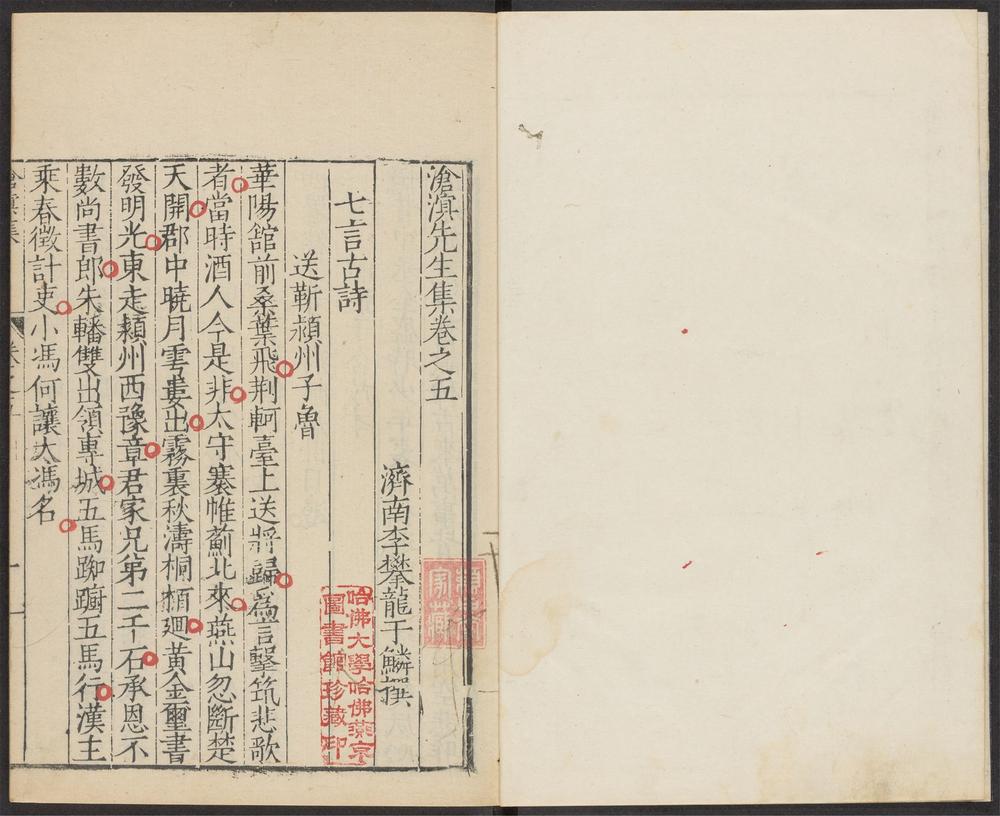 滄溟先生集卷之五
濟南李攀龍于鱗撰
七言古詩
送靳潁州子魯
華陽館前桑葉飛荆軻臺上送將歸為言擊筑悲歌
者當時酒人今是非太守褰帷薊北來燕山忽斷楚
天開郡中曉月雲婁出霧裏秋濤桐栢廻黄金璽書
發明光東走潁州西豫章君家兄弟二千石承恩不
數尚書郎朱轓雙出領專城五馬踟躕五馬行漢主
乘春徵計吏小馮何讓大馮名
哈佛大學哈佛燕京
圖書館珍藏印
家藏